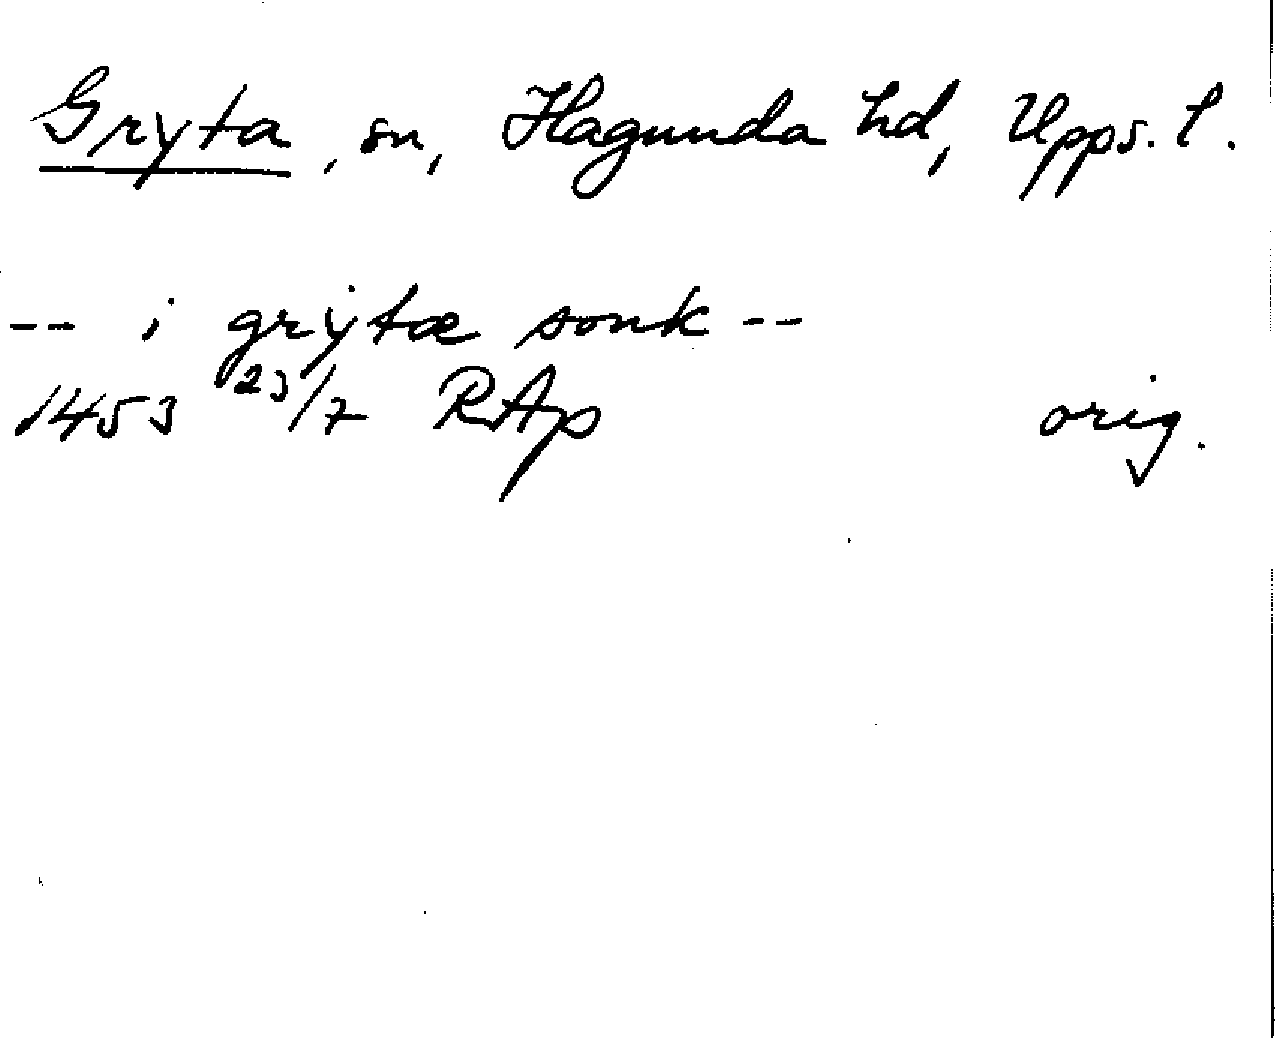 Gryta, sn, Hagunda hd, Upps. l.
-- i grẏtæ sonk --
1453 23/7 RAp orig.